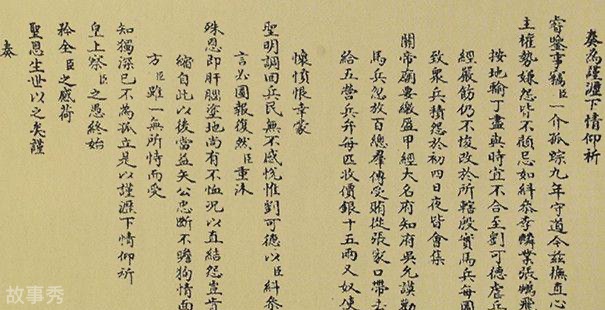 奏為謹瀝下情仰祈
睿鑒事竊臣一介孤踪九年守道今茲撫直心
主權勢嫌怨皆不顧忌如糾叅李麟業張鵬飛
按地輸丁畫與時宜不合至劉可德虐兵
經嚴飭仍不悛改於所轄殷實馬兵每
致眾兵積怨於初四日夜皆會集
關帝廟要繳盔甲經大名府知府吳允謨勸
馬兵忽放百總羣傳受賄從張家口帶去
給五營兵弁每匹收價銀十五兩又奴使
懷憤恨幸蒙
聖明調回兵民無不感悅惟劉可德以臣糾叅
言必圖報復然臣重沐
殊恩即肝腦塗地尚有不恤況以直結怨豈肯
縮自此以後當益矢公忠斷不瞻狥情面
方臣雖一無所恃而受
知獨深已不為孤立是以謹瀝下情仰祈
皇上察臣之愚終始
矜全臣之感荷
聖恩生世以之矣謹
奏
故事秀